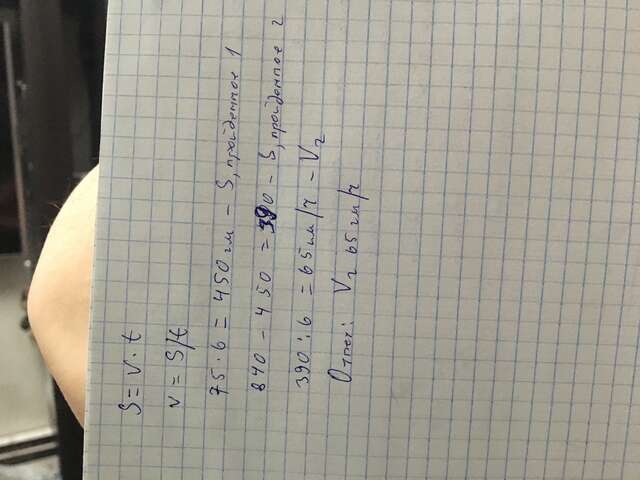 S = v · t
v = S/t
75 · 6 = 450 км - S, пройденное 1
840 - 450 = 390 - S, пройденное 2
390 : 6 = 65 км/ч - V2
Ответ: V2 65 км/ч